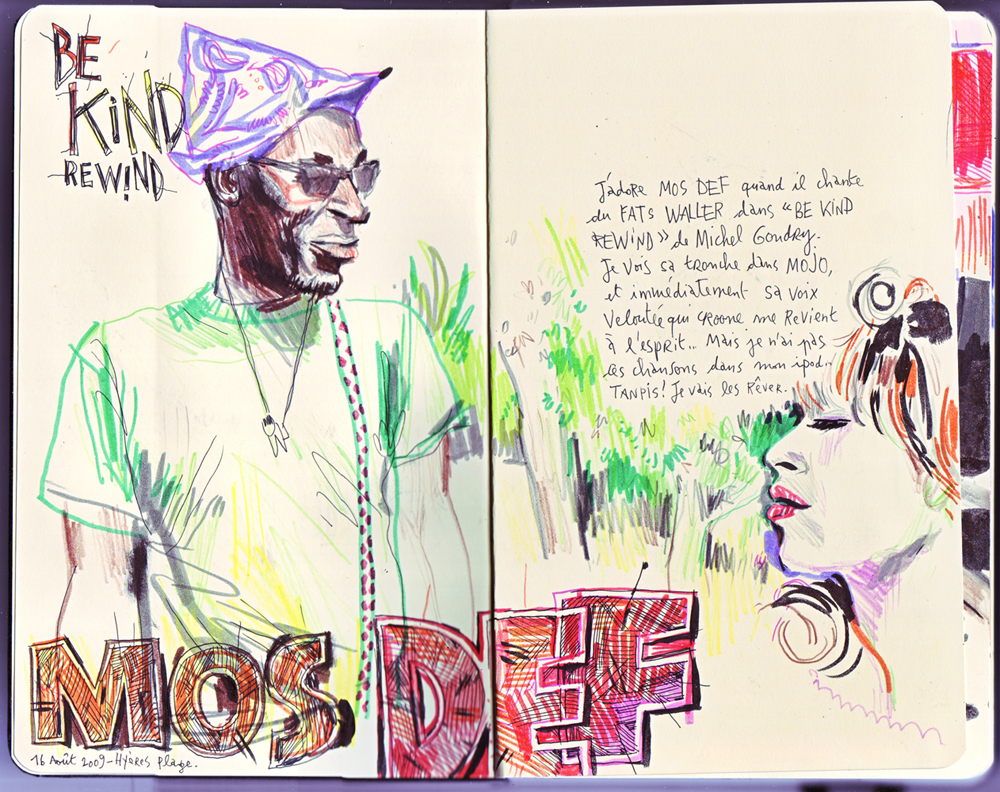 BE
KiND
REWiND
J'adore MOS DEF quand il chante
du FATS WALLER dans "BE KiND
REWiND" de Michel Gondry.
Je vois sa tronche dans MOJO,
et immédiatement sa voix
Veloutée qui CROONE me Revient
à l'esprit... Mais je n'ai pas
ces chansons dans mon ipod..
TANPIS! Je vais les Rêver.
MOS DEF
16 Août 2009-Hyères plage.